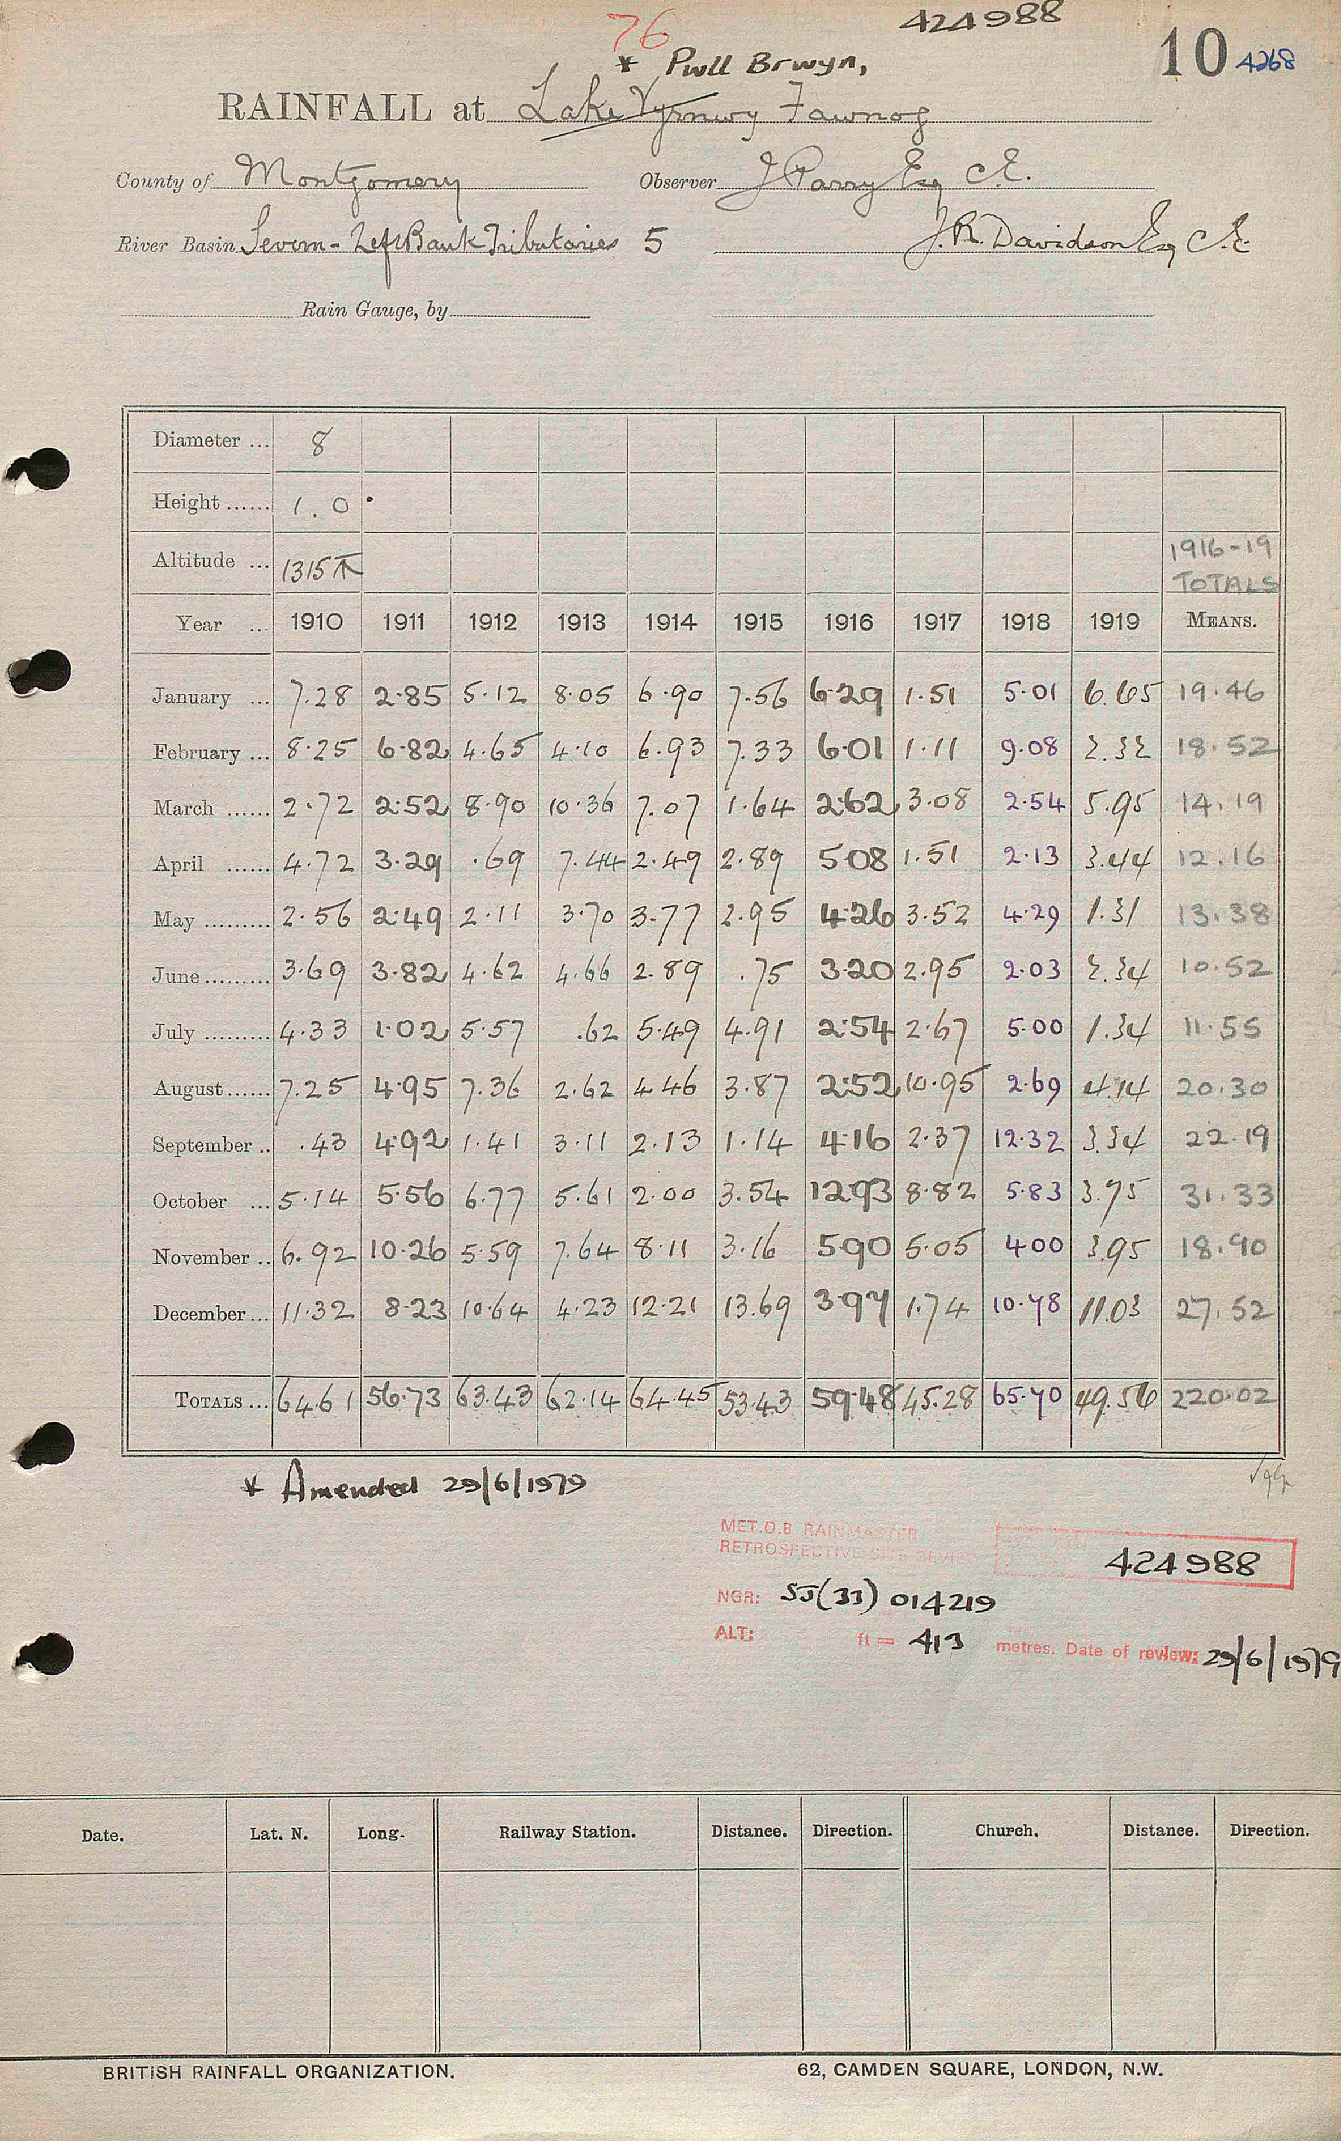 76
424988
* Pwll Brwyn,
10 4268
RAINFALL at Lake Vyrnwy Fawnog
County of Montgomery Observer J Parry Esq C.E.
River Basin Severn - Left Bank Tributaries 5 J.R. Davidson Esq C.E
Rain Gauge, by
Diameter ... 8
Height ...... 1.0
Altitude ... 1315 1916-19 TOTALS
Year ... 1910 1911 1912 1913 1914 1915 1916 1917 1918 1919 MEANS.
January ... 7.28 2.85 5.12 8.05 6.90 7.56 6.29 1.51 5.01 6.65 19.46
February ... 8.25 6.82 4.65 4.10 6.93 7.33 6.01 1.11 9.08 2.32 18.52
March ...... 2.72 2.52 8.90 10.36 7.07 1.64 2.62 3.08 2.54 5.95 14.19
April ...... 4.72 3.29 .69 7.44 2.49 2.89 5.08 1.51 2.13 3.44 12.16
May ......... 2.56 2.49 2.11 3.70 3.77 2.95 4.26 3.52 4.29 1.31 13.38
June ......... 3.69 3.82 4.62 4.66 2.89 .75 3.20 2.95 2.03 2.34 10.52
July ......... 4.33 1.02 5.57 .62 5.49 4.91 2.54 2.67 5.00 1.34 11.55
August ...... 7.25 4.95 7.36 2.62 4.46 3.87 2.52 10.95 2.69 4.14 20.30
September .. .43 4.92 1.41 3.11 2.13 1.14 4.16 2.37 12.32 3.34 22.19
October ... 5.14 5.56 6.77 5.61 2.00 3.54 12.93 8.82 5.83 3.75 31.33
November .. 6.92 10.26 5.59 7.64 8.11 3.16 5.90 5.05 4.00 3.95 18.90
December ... 11.32 8.23 10.64 4.23 12.21 13.69 3.97 1.74 10.78 11.03 27.52
TOTALS ... 64.61 56.73 63.43 62.14 64.45 53.43 59.48 45.28 65.70 49.56 220.02
* Amended 29/6/1979
MET.O.8 RAINMASTER
RETROSPECTIVE SITE REVIEW 424988
NGR: SJ(33) 014219
ALT: ft = 413 metres. Date of review: 29/6/1979
Date. Lat. N. Long. Railway Station. Distance. Direction. Church. Distance. Direction.
BRITISH RAINFALL ORGANIZATION. 62, CAMDEN SQUARE, LONDON, N.W.